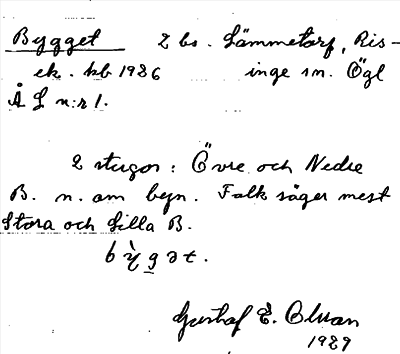 Bygget 2 bs. Lämmetorp, Ris-
ek. kb 1926 inge sn. Ögl
Å L n:r 1.
2 stugor: Övre och Nedre
B. n. om byn. Folk säger mest
Stora och Lilla B.
Gustaf E. Olsson
1929